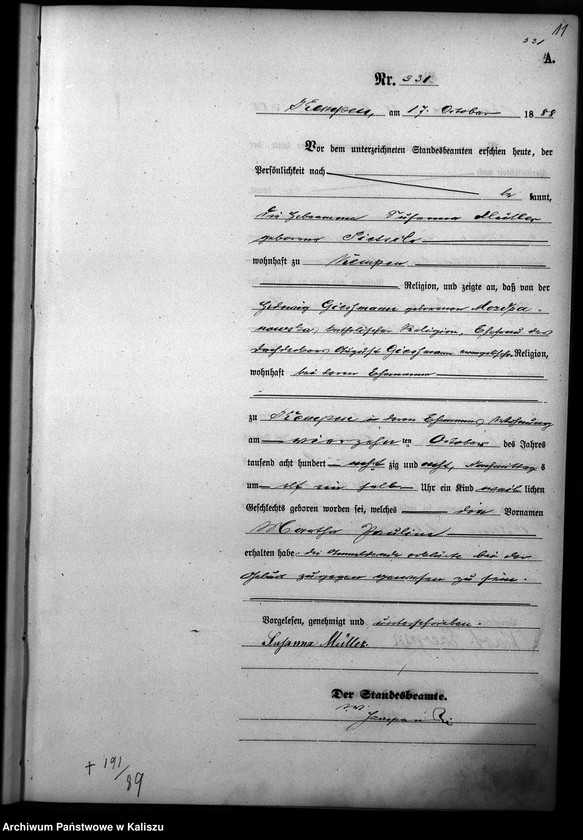 11
331
A.
Nr. 331
Kempen, am 17. October 1888
Vor dem unterzeichneten Standesbeamten erschien heute, der
Persönlichkeit nach
be kannt,
die Hebeamme Susanna Müller
geborene
wohnhaft zu Kempen
Religion, und zeigte an, daß von der
Hedwig Giechmann geborenen
katholischer Religion, Ehefrau des
Dachdeckers August Giechmann evangelischer Religion,
wohnhaft bei deren Ehemann
zu Kempen in deren Ehemannes Wohnung
am vierzehn ten October des Jahres
tausend acht hundert acht zig und acht, Nachmittags
um elf ein halb Uhr ein Kind weib lichen
Geschlechts geboren worden sei, welches den Vornamen
Martha Pauline
erhalten habe. die Anmeldende erklärte bei der
Geburt zugegen gewesen zu sein.
Vorgelesen, genehmigt und unterschrieben.
Susanna Müller.
Der Standesbeamte.
+ 191/89
Archiwum Państwowe w Kaliszu